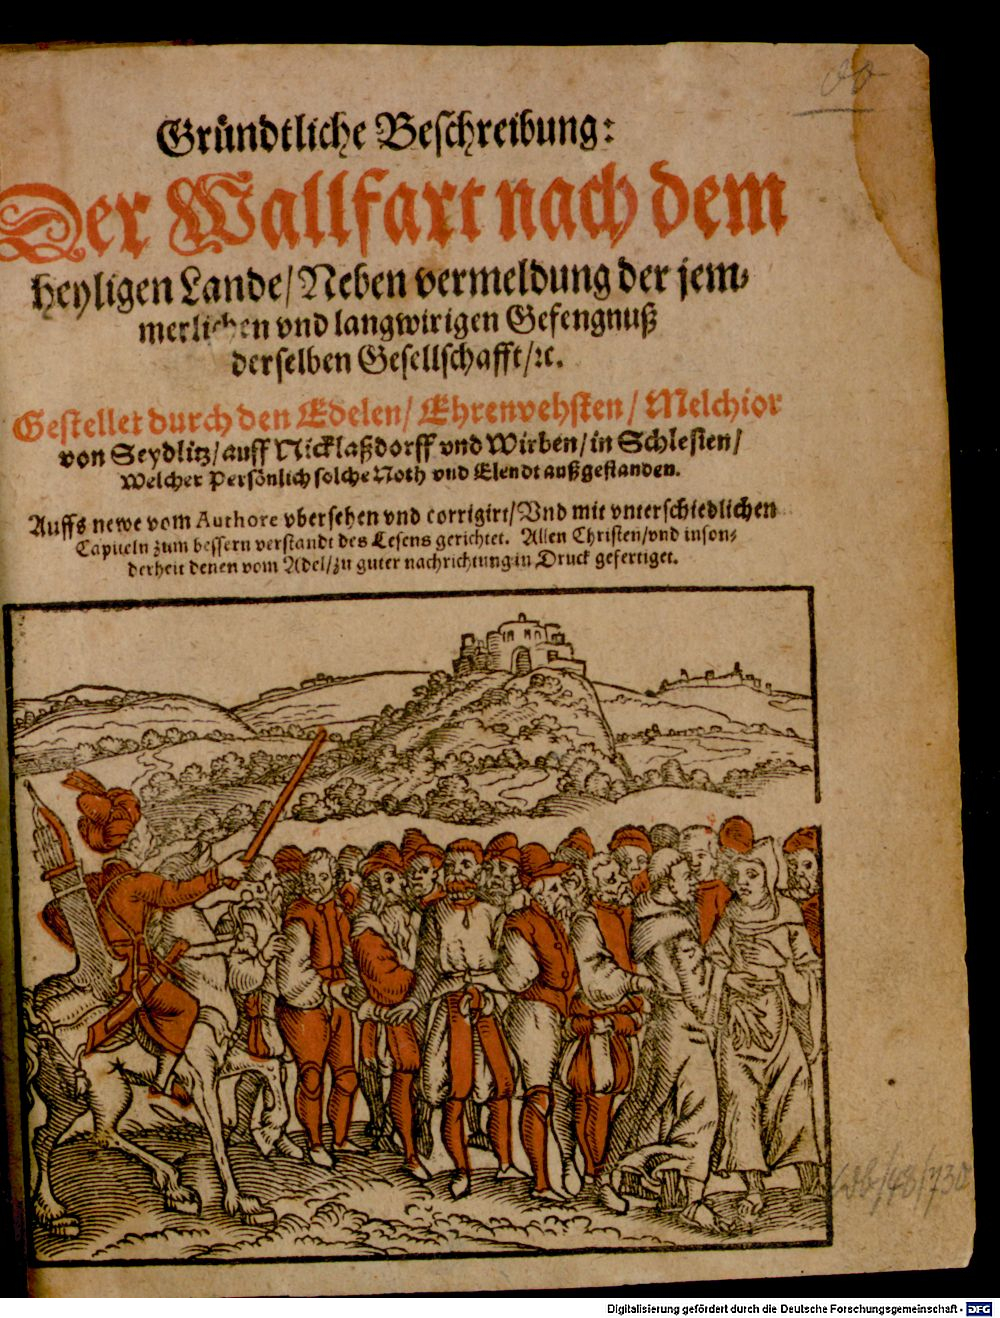 Gründtliche Beschreibung:
Der Wallfart nach dem
heyligen Lande/Neben vermeldung der jem-
merlichen vnd langwirigen Gefengnuß
derselben Gesellschafft/ꝛc.
Gestellet durch den Edelen/ Ehrenvehsten/ Melchior
von Seydlitz/auff Nicklaßdorff vnd Wirben/in Schlesien/
Welcher Persönlich solche Noth vnd Elendt außgestanden.
Auffs newe vom Authore vbersehen vnd corrigirt/Vnd mit vnterschiedlichen
Capiteln zum bessern verstandt des Lesens gerichtet. Allen Christen/vnd inson-
derheit denen vom Adel/zu guter nachrichtung in Druck gefertiget.
Digitalisierung gefördert durch die Deutsche Forschungsgemeinschaft - DFG